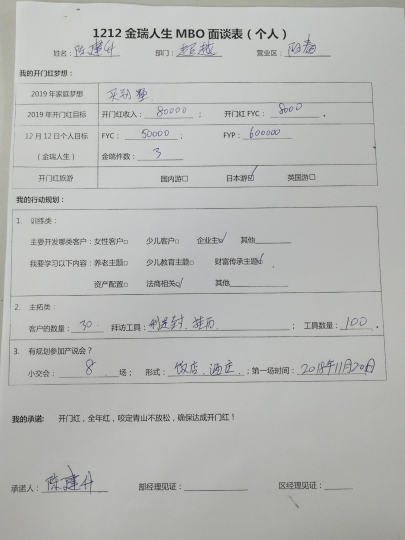 1212 金瑞人生 MBO 面谈表（个人）
姓名：陈建升 部门：超越 营业区：阳春
我的开门红梦想：
2019 年家庭梦想
2019 年开门红目标 开门红收入：80000 ； 开门红 FYC： 8000 。
12 月 12 日个人目标 FYC： 50000 ； FYP： 600000
（金瑞人生） 金瑞件数： 3
开门红旅游 国内游□ 日本游☑ 英国游□
我的行动规划：
1. 训练类：
主要开发哪类客户：女性客户□ 少儿客户□ 企业主☑ 其他
我要学习以下内容：养老主题□ 少儿教育主题□ 财富传承主题☑
资产配置□ 法商相关☑ 其他
2. 主拓类：
客户的数量： 30 拜访工具： ； 工具数量： 100 。
3. 有规划参加产说会？
小交会： 8 场； 形式： 饭店、酒庄 ；第一场时间： 2018年11月20日
我的承诺： 开门红，全年红，咬定青山不放松，确保达成开门红！
承诺人：陈建升 部经理见证： 区经理见证：